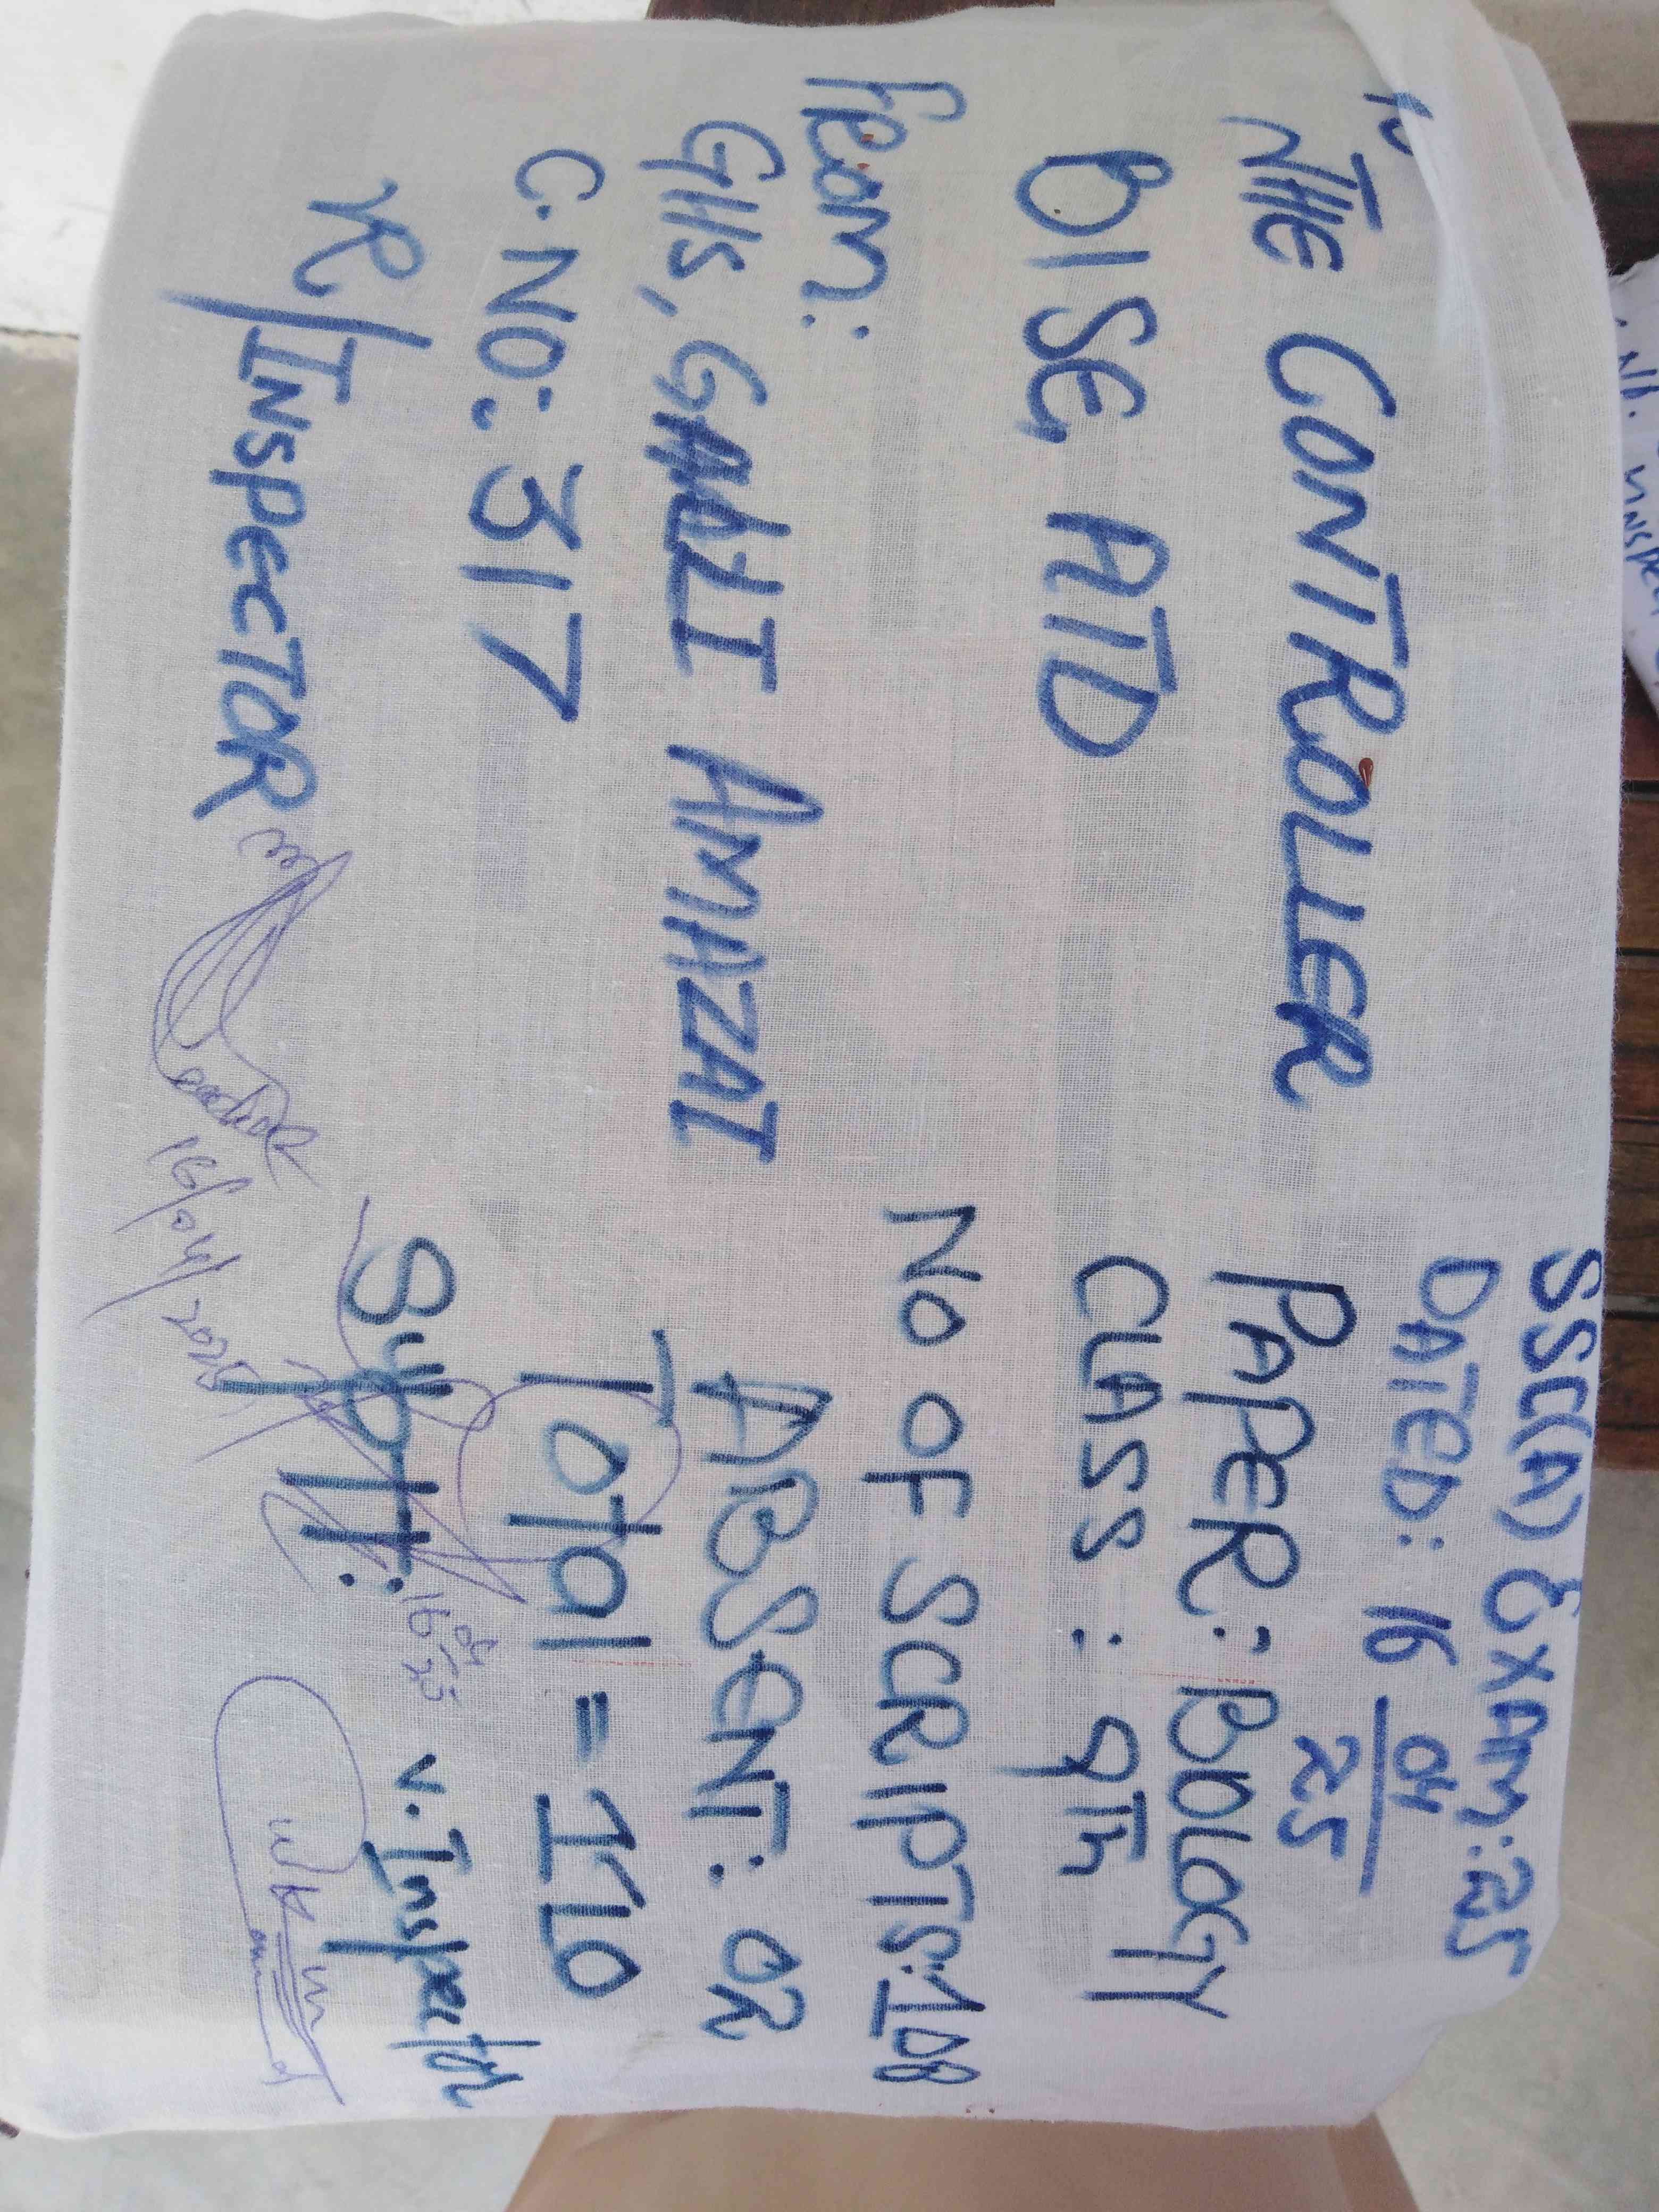 To
THE CONTROLLER
BISE ATD
From:
GHS, GALLI AMAZAI
C.NO: 317
R/INSPECTOR
16/04/2025
SSC(A) EXAM: 25
DATED: 16/04/25
PAPER: BIOLOGY
CLASS: 9Th
NO OF SCRIPTS: 108
ABSENT: 02
Total = 110
Suptt:
16/04/25
V. Inspector